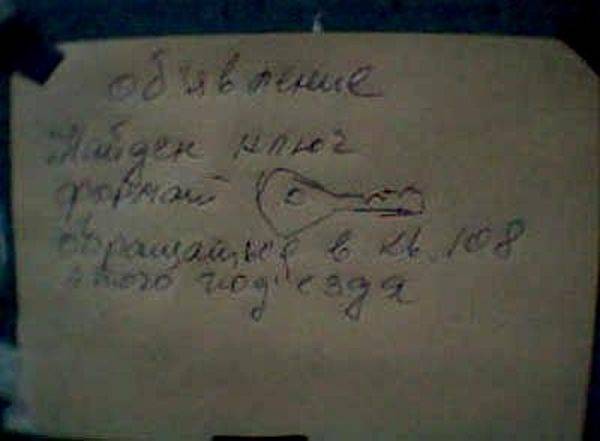 об'явление
Найден ключ
формат
обращаться в кв. 108
этого под'езда